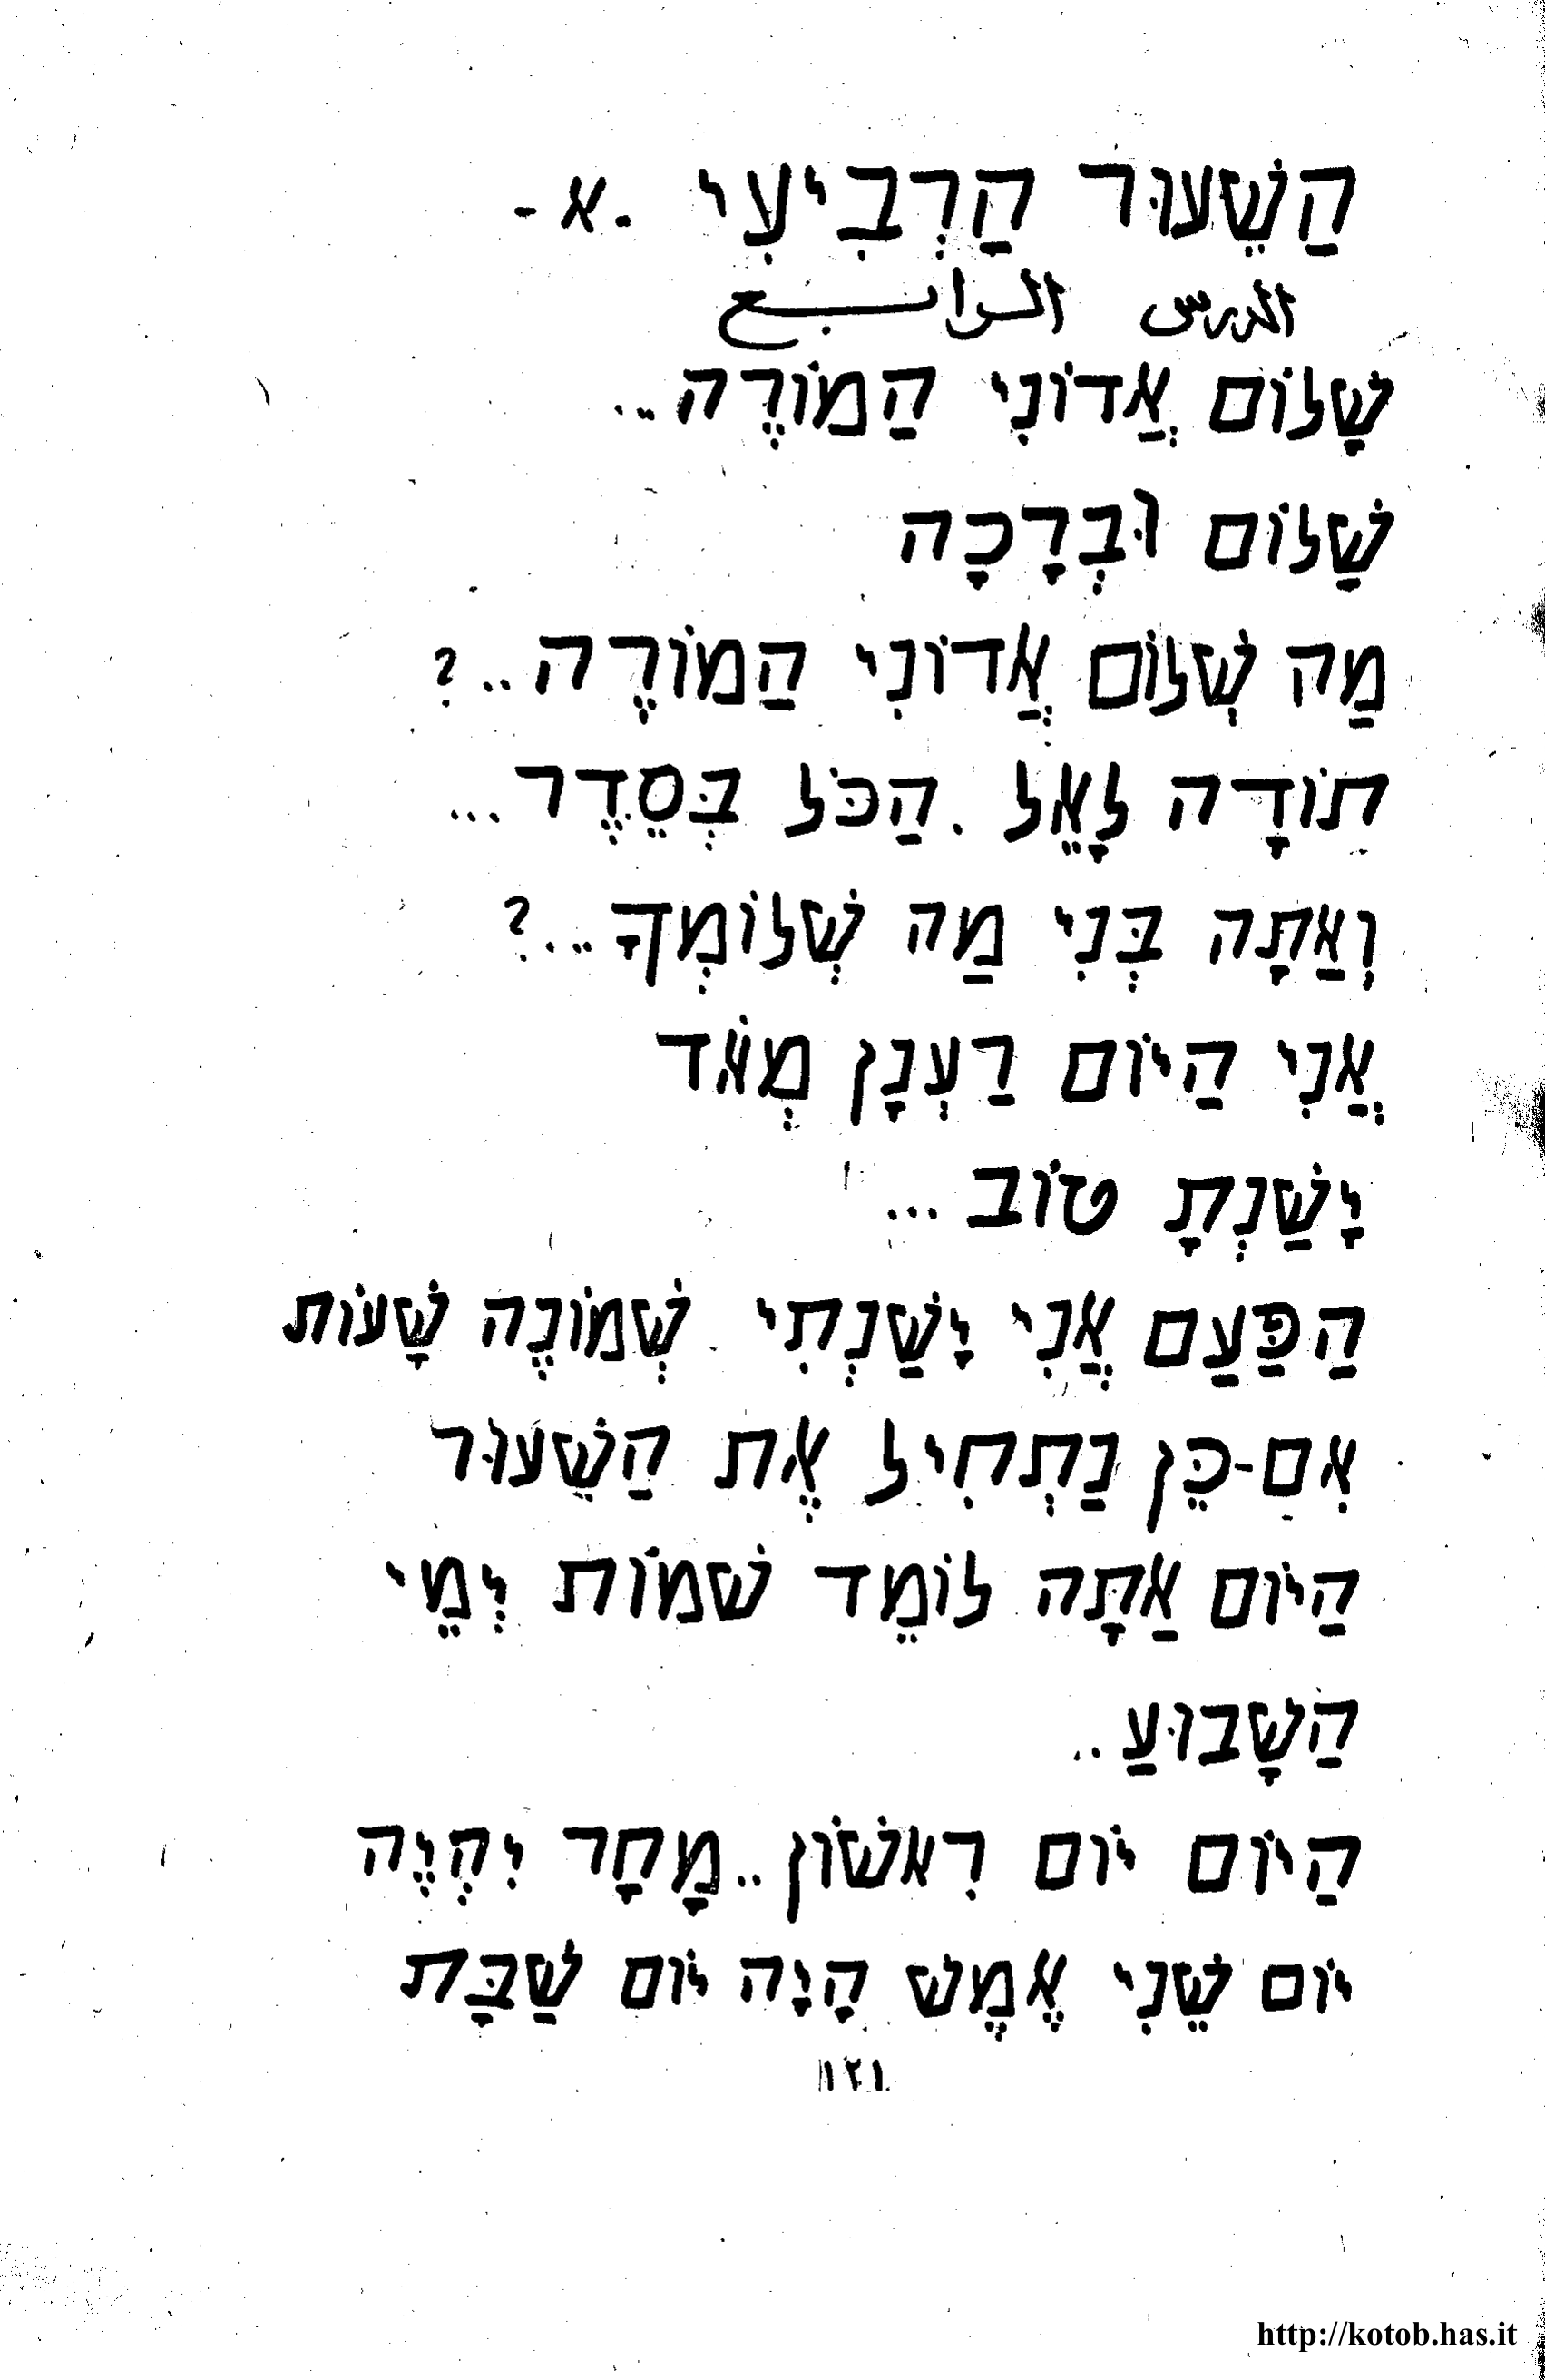 הַשֵׁעוּר הַרְבִיעִי .א-
الدرس الرابع
שָׁלוֹם אֲדוֹנִי הַמוֹרֶה...
שַׁלוֹם וּבְרָכָה
מַה שְׁלוֹם אֲדוֹנִי הַמוֹרֶה..؟
תוֹדָה לָאֵל . הַכֹּל בְּסֵדֶר...
וְאַתָה בְּנִי מַה שְׁלוֹמְךָ...؟
אֲנִי הַיוֹם רַעְנָן מְאֹד
יָשַׁנְתָ טוֹב ...
הַפַּעַם אֲנִי יָשַׁנְתִי שְׁמוֹנֶה שָׁעוֹת
אִם-כֵּן נַתְחִיל אֶת הַשֵׁעוּר
הַיוֹם אַתָּה לוֹמֵד שׁמוֹת יְמֵי
הַשָׁבוּעַ..
הַיוֹם יוֹם רִאשׁוֹן..מָחָר יִהְיֶה
יוֹם שֵׁנִי אֶמֶשׁ הָיָה יוֹם שַׁבָּת
١٢١
http://kotob.has.it